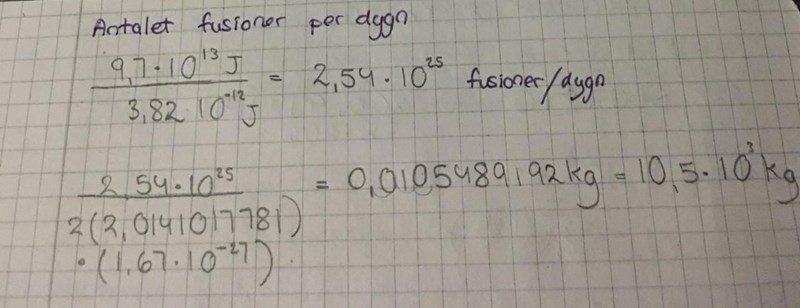 Antalet fusioner per dygn
9,7·10¹³ J / 3,82 10⁻¹² J = 2,54·10²⁵ fusioner/dygn
2,54·10²⁵ / 2(2,0141017781) ·(1,67·10⁻²⁷) = 0,0105489192 kg = 10,5·10³ kg